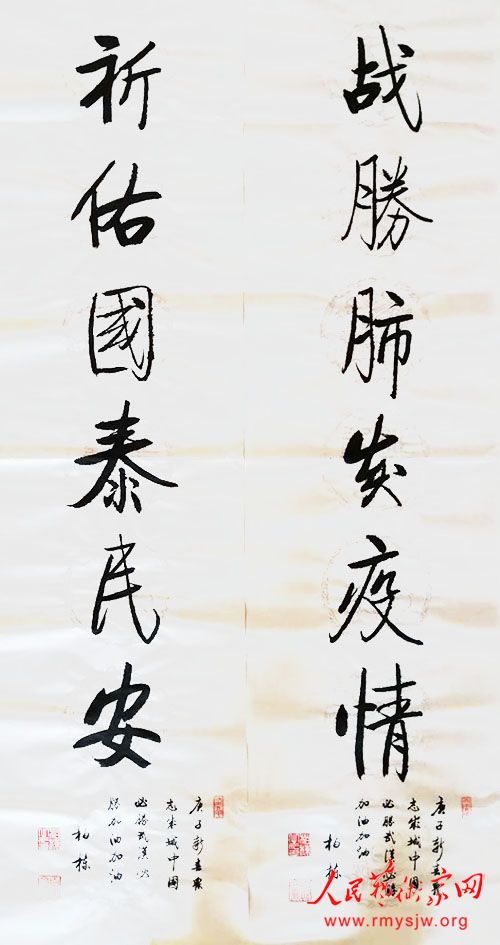 战勝肺炎疫情
庚子新春眾
志成城中國
必勝武漢必勝
加油加油
柏栋
祈佑國泰民安
庚子新春眾
志成城中國
必勝武漢必
勝加油加油
柏栋
人民藝術家网
www.rmysjw.org